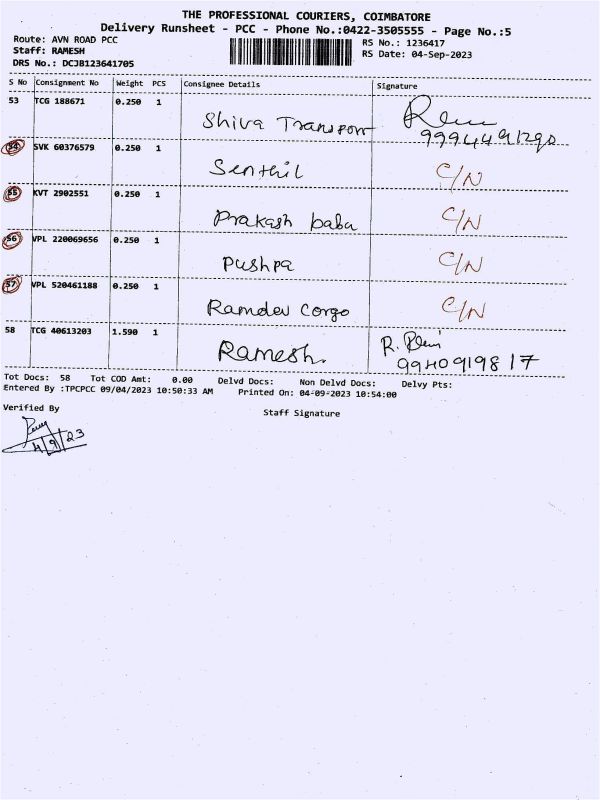 THE PROFESSIONAL COURIERS, COIMBATORE
Delivery Runsheet - PCC - Phone No.:0422-3505555 - Page No.:5
Route: AVN ROAD PCC
RS No.: 1236417
Staff: RAMESH
RS Date: 04-Sep-2023
DRS No.: DCJB123641705
S No Consignment No Weight PCS Consignee Details Signature
53 TCG 188671 0.250 1
Shiva Transport
54 SVK 60376579 0.250 1
Senthil C/N
55 KVT 2902551 0.250 1
Prakash baba C/N
56 VPL 220069656 0.250 1
Pushpa C/N
57 VPL 520461188 0.250 1
Ramdev Corgo C/N
58 TCG 40613203 1.590 1
Ramesh. 9940919817
Tot Docs: 58 Tot COD Amt: 0.00 Delvd Docs: Non Delvd Docs: Delvy Pts:
Entered By :TPCPCC 09/04/2023 10:50:33 AM Printed On: 04-09-2023 10:54:00
Verified By
Staff Signature
4/9/23